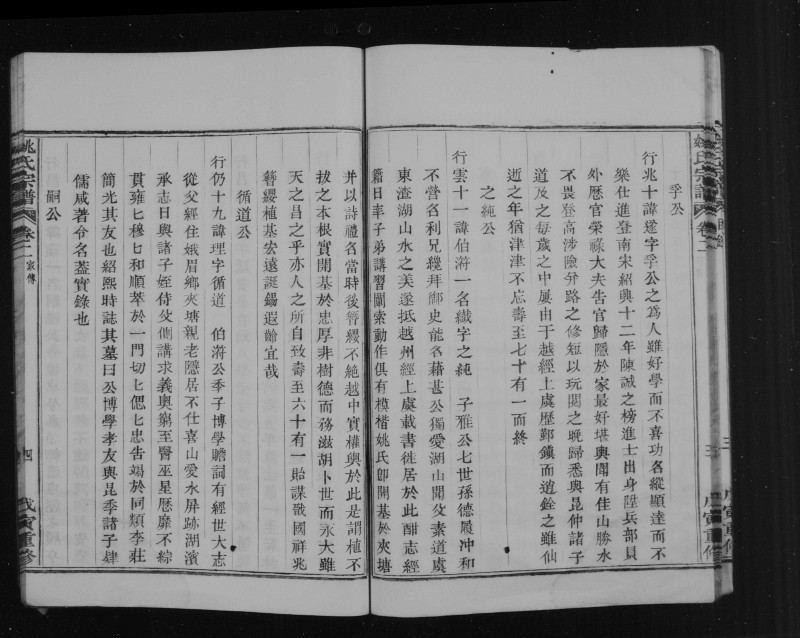 孚公
行兆十諱遂字孚公之為人雖好學而不喜功名縱顯達而不
樂仕進登南宋紹興十二年陳誠之榜進士出身陞兵部員
外歷官榮祿大夫告官歸隱於家最好堪輿聞有佳山勝水
不畏登高涉險弁路之修短以玩閱之晚歸悉與昆仲諸子
道及之每歲之中屢由于越經上虞歷鄞鎮而道銓之雖仙
逝之年猶津津不忘壽至七十有一而終
之純公
行雲十一諱伯㳺一名鐵字之純 子雅公七世孫德履冲和
不營名利兄纔拜御史能名藉甚公獨愛湖山聞父素道虞
東渣湖山水之美遂抵越州經上虞載書徙居於此酣志經
籍日率子弟講習闡索動作俱有模楷姚氏卽開基於夾塘
并以詩禮名當時後簪纓不絕越中實權輿於此是謂植不
拔之本根實開基於忠厚非樹德而務滋胡卜世而永大雖
天之昌之乎亦人之所自致壽至六十有一貽謀戩國祥兆
簪纓植基宏遠誕錫遐齡宜哉
循道公
行仍十九諱理字循道 伯㳺公季子博學贍詞有經世大志
從父經住娥眉鄉夾塘親老隱居不仕喜山愛水屏跡湖濱
承志日與諸子姪侍父側講求義輿窮至醫巫星歷靡不綜
貫雍匕穆匕和順萃於一門切匕偲匕忠告竭於同類李莊
簡光其友也紹熙時誌其墓曰公博學孝友與昆季諸子肆
儒咸著令名蓋實錄也
嗣公
姚氏宗譜 卷二 家傳 四 戊寅重修